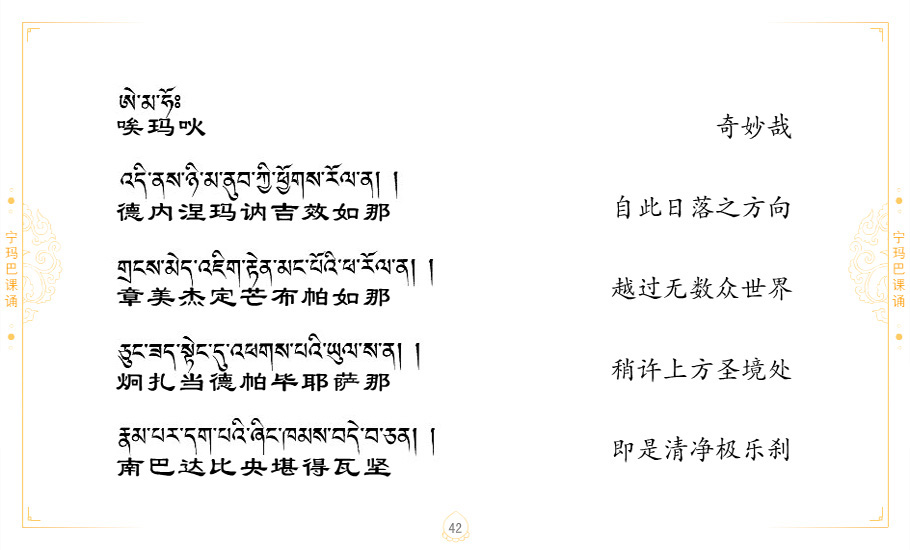 ཨེ་མ་ཧོཿ
唉玛吙
奇妙哉
འདི་ནས་ཉི་མ་ནུབ་ཀྱི་ཕྱོགས་རོལ་ན། །
德内涅玛讷吉效如那
自此日落之方向
གྲངས་མེད་འཇིག་རྟེན་མང་པོའི་ཕ་རོལ་ན། །
章美杰定芒布帕如那
越过无数众世界
ཅུང་ཟད་སྟེང་དུ་འཕགས་པའི་ཡུལ་ས་ན། །
炯扎当德帕毕耶萨那
稍许上方圣境处
རྣམ་པར་དག་པའི་ཞིང་ཁམས་བདེ་བ་ཅན། །
南巴达比央堪得瓦坚
即是清净极乐刹
宁玛巴课诵
宁玛巴课诵
42